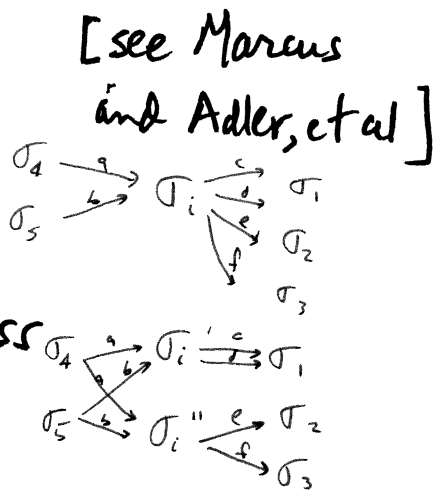 [see Marcus
and Adler, et al]
σ4 a σi c σ1
σ5 b d
e σ2
f σ3
ss σ4 a σi' c σ1
b d
a
σ5 b σi'' e σ2
f σ3